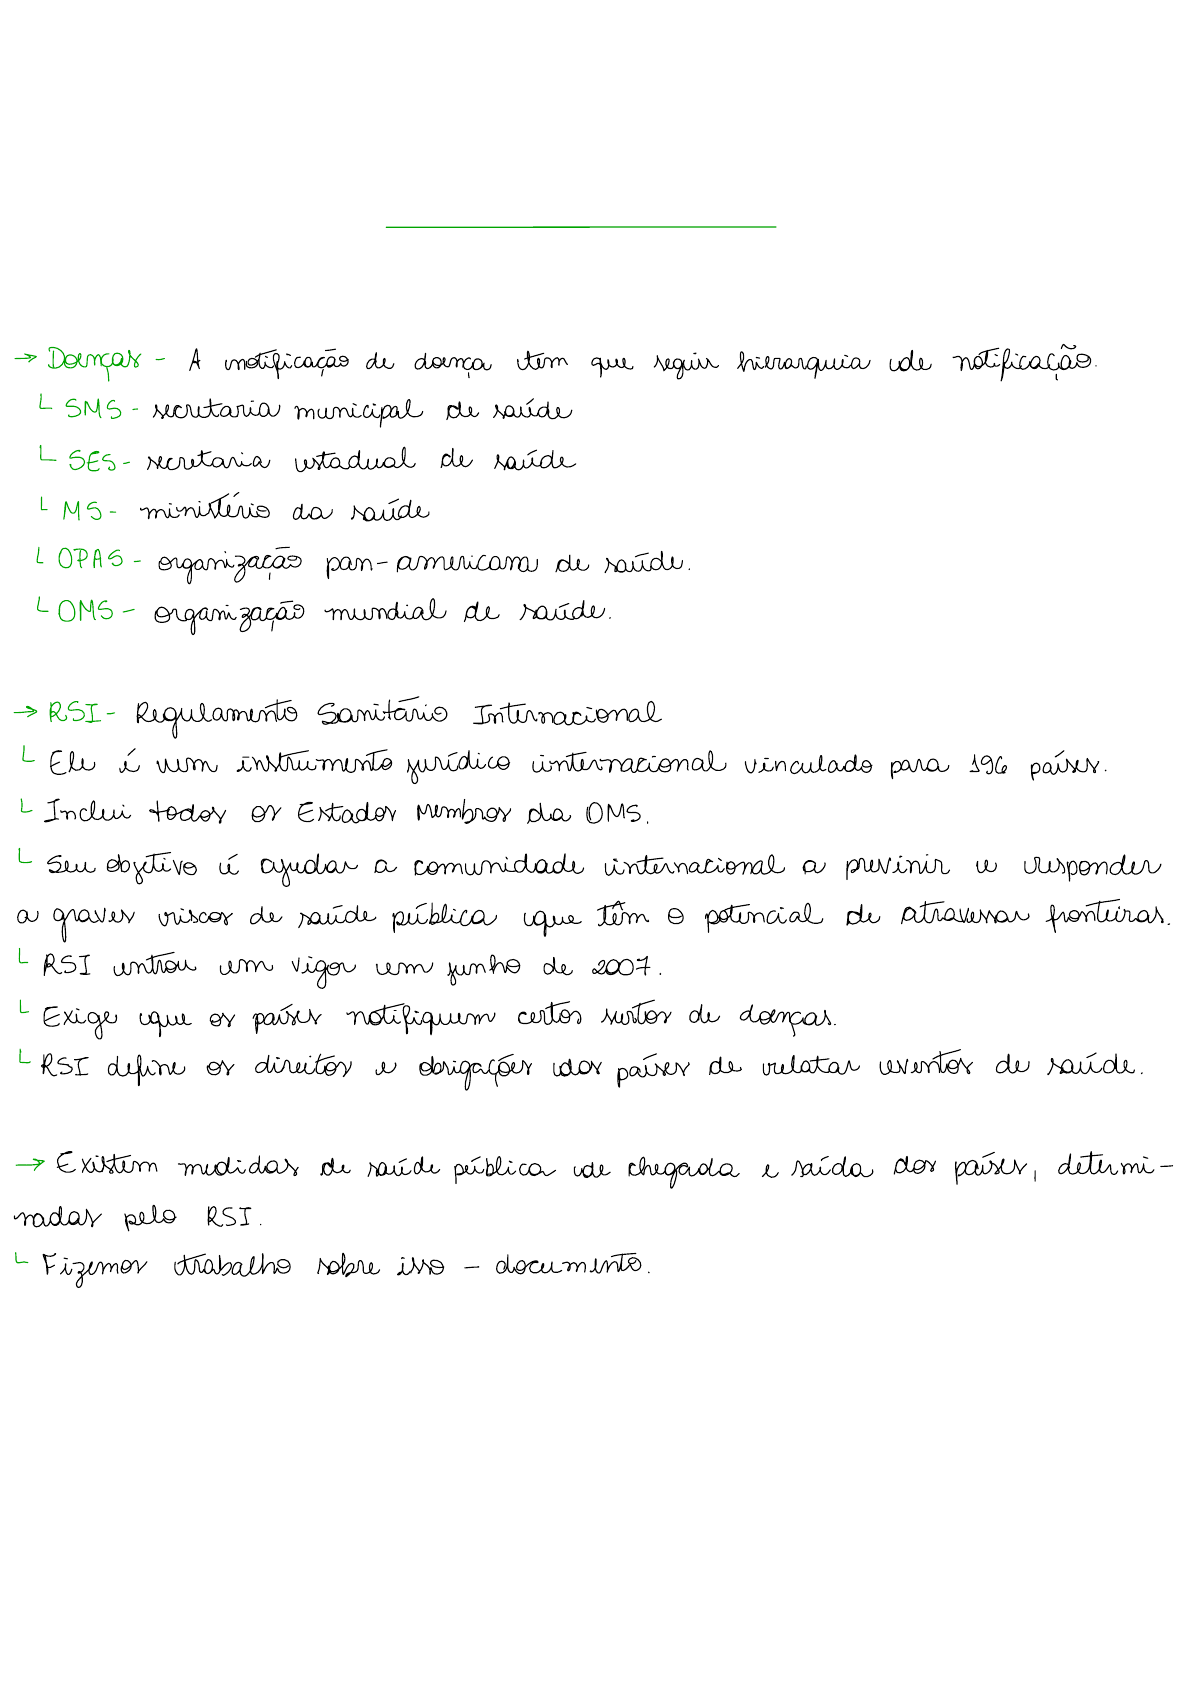 → Doenças - A notificação de doença tem que seguir hierarquia de notificação.
└ SMS - secretaria municipal de saúde
└ SES - secretaria estadual de saúde
└ MS - ministério da saúde
└ OPAS - organização pan-americana de saúde.
└ OMS - organização mundial de saúde.
→ RSI - Regulamento Sanitário Internacional
└ Ele é um instrumento jurídico internacional vinculado para 196 países.
└ Inclui todos os Estados Membros da OMS.
└ Seu objetivo é ajudar a comunidade internacional a previnir e responder
a graves riscos de saúde pública que têm o potencial de atravessar fronteiras.
└ RSI entrou em vigor em junho de 2007.
└ Exige que os países notifiquem certos surtos de doenças.
└ RSI define os direitos e obrigações dos países de relatar eventos de saúde.
→ Existem medidas de saúde pública de chegada e saída dos países, determi-
nadas pelo RSI.
└ Fizemos trabalho sobre isso - documento.